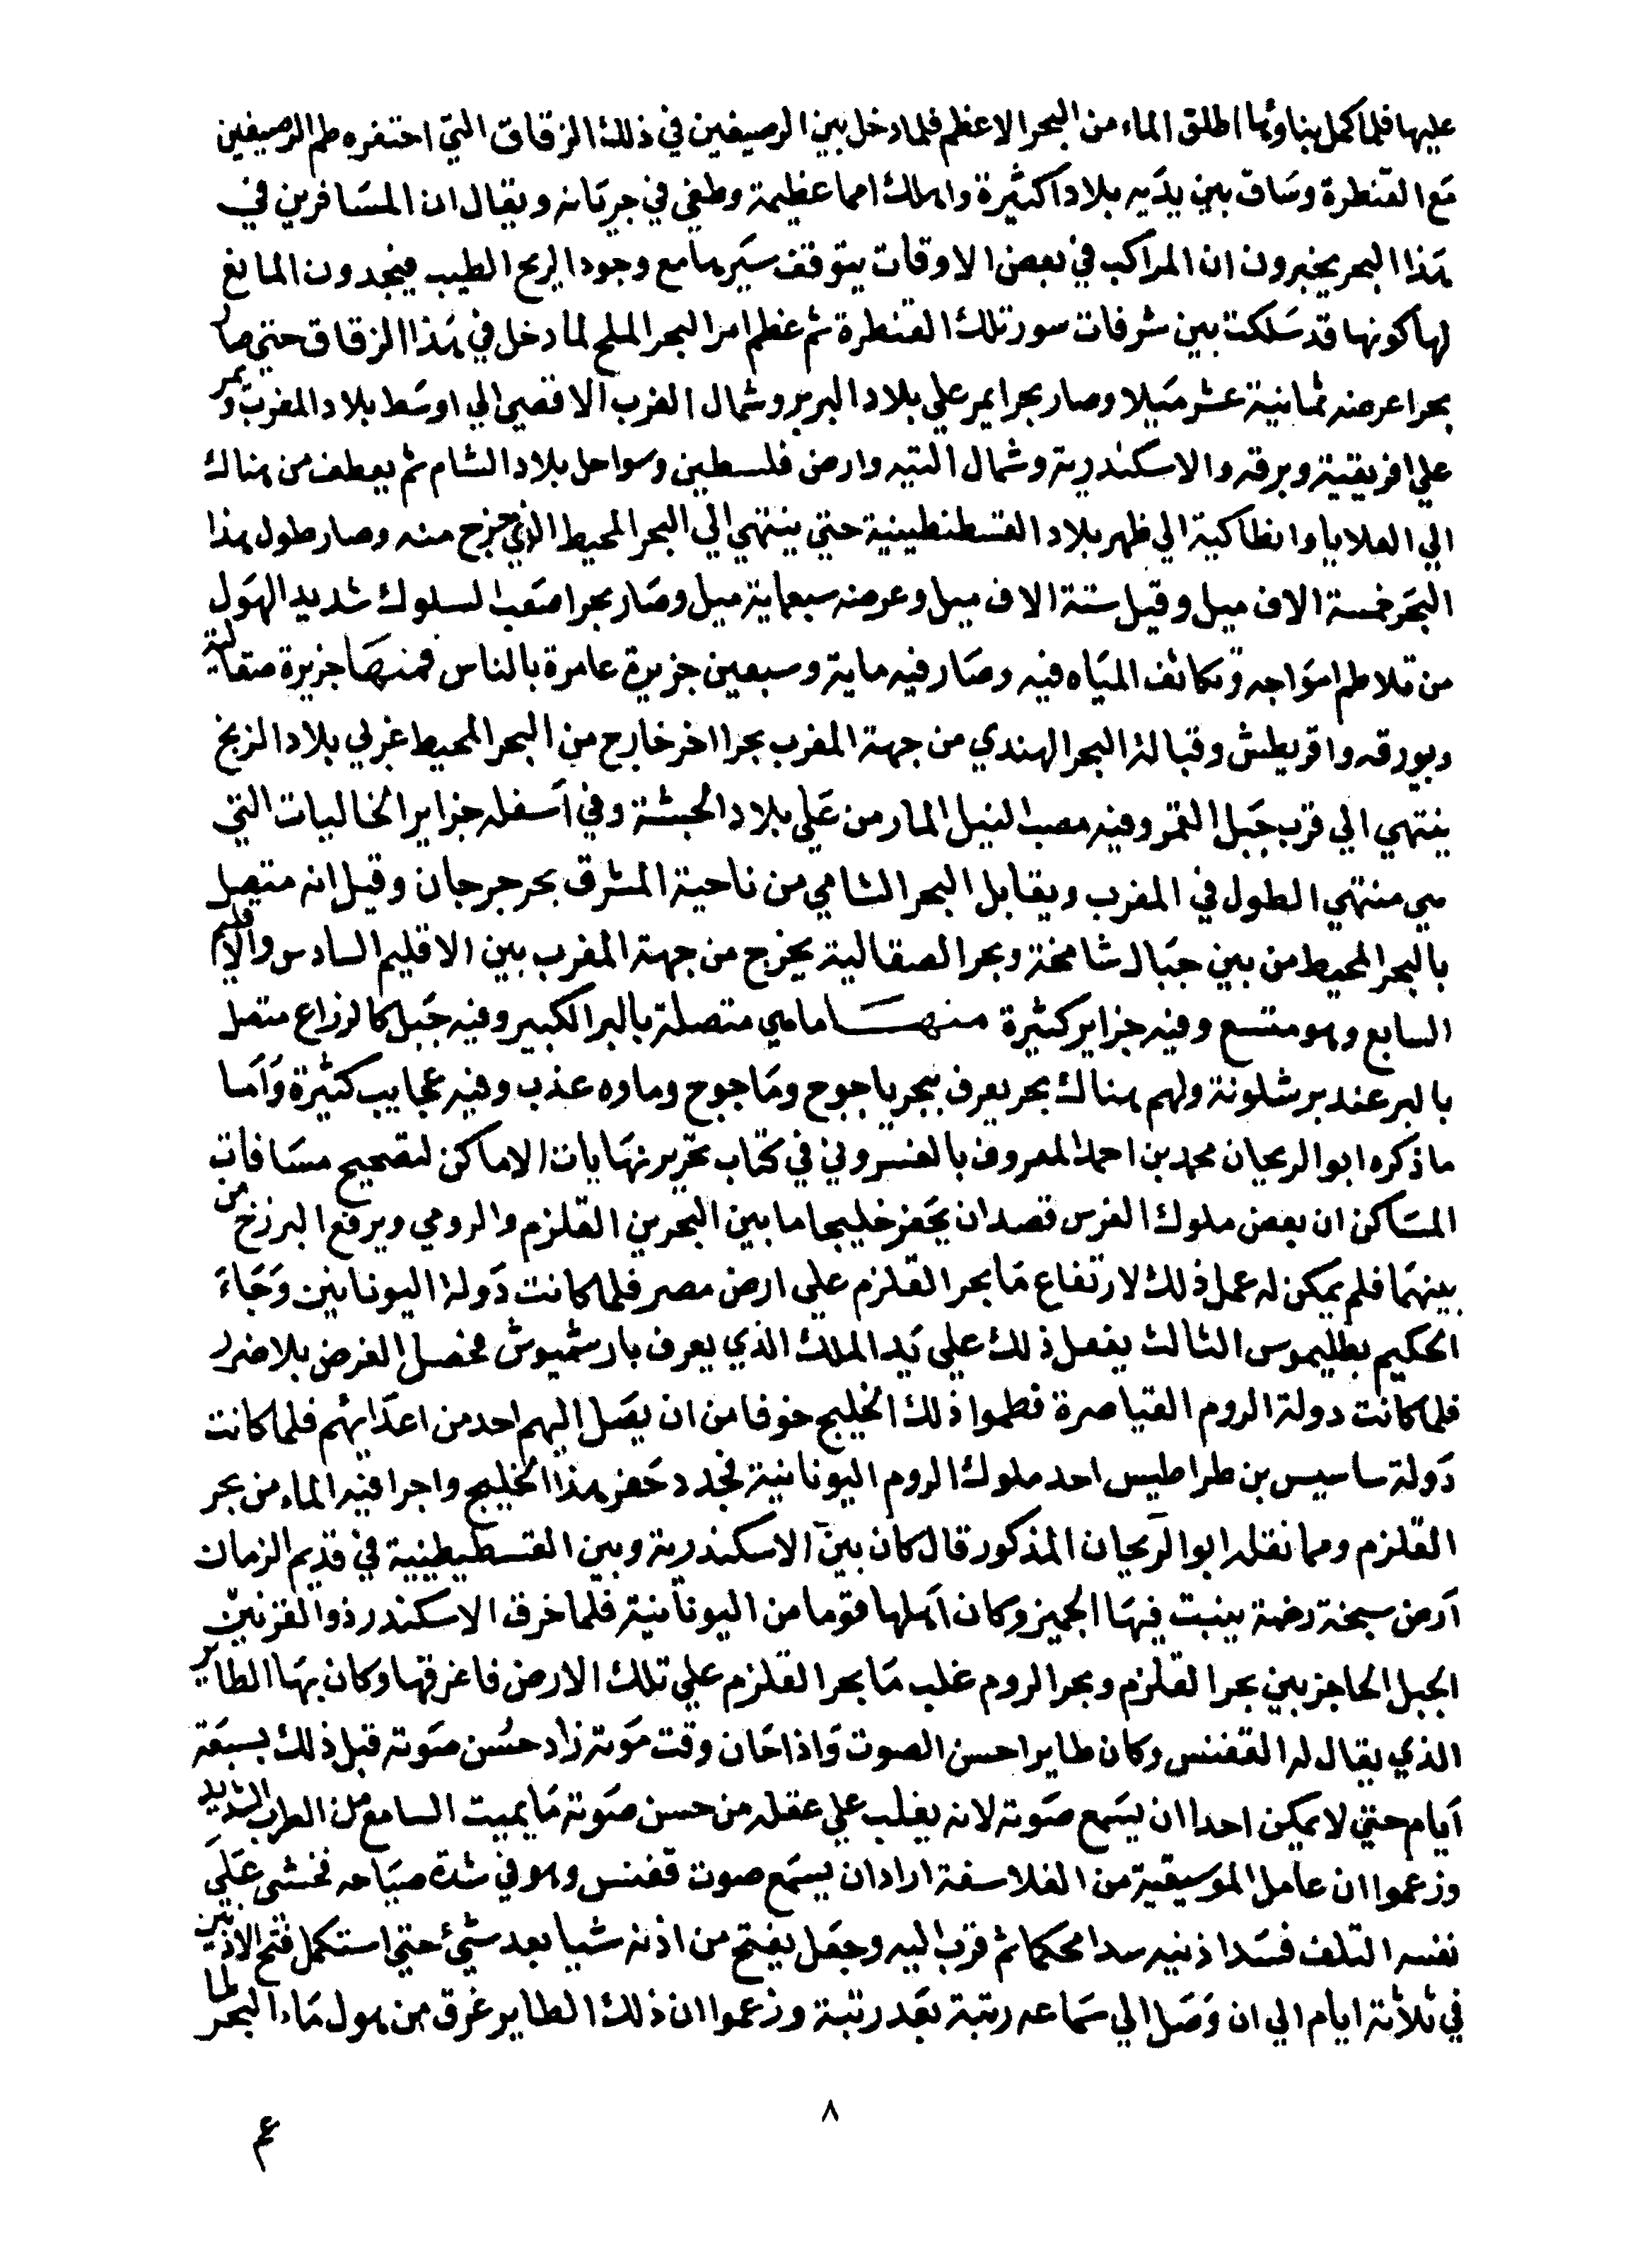 عليها فلما كمل بناوئها اطلق الماء من البحر الاعظم فلما دخل بين الرصيفين في ذلك الزقاق التي احتفره طم الرصيفين
مع القنطرة وساق بين يديه بلادا كثيرة واهلك امما عظيمة وطغي في جريانه ويقال ان المسافرين في
هذا البحر يخبرون ان المراكب في بعض الاوقات يتوقف سيرها مع وجود الريح الطيب فيجدون المانع
لها كونها قد سلكت بين شرفات سور تلك القنطرة ثم عظم امر البحر الملح لما دخل في هذا الزقاق حتي صار
بحرا عرضه ثمانية عشر ميلا وصار بحرا يمر علي بلاد البربر وشمال الغرب الاقصي الي اوسط بلاد المغرب ويمر
علي افريقية وبرقه والاسكندرية وشمال التيه وارض فلسطين وسواحل بلاد الشام ثم يعطف من هناك
الي العلايا وانطاكية الي ظهر بلاد القسطنطينية حتي ينتهي الي البحر المحيط الذي خرج منه وصار طول هذا
البحر خمسة الاف ميل وقيل ستة الاف ميل وعرضه سبعماية ميل وصار بحرا صعب السلوك شديد الهول
من تلاطم امواجه وتكاثف المياه فيه وصار فيه ماية وسبعين جزيرة عامرة بالناس فمنها جزيرة صقالية
وبورقه واقريطش وقبالة البحر الهندي من جهة المغرب بحرا اخر خارج من البحر المحيط غربي بلاد الزنج
ينتهي الي قرب جبل القمر وفيه مصب النيل المار من علي بلاد الحبشة وفي اسفله جزاير الخاليات التي
هي منتهي الطول في المغرب ويقابل البحر الشامي من ناحية المشرق بحر جرجان وقيل انه متصل
بالبحر المحيط من بين جبال شامخة وبحر الصقالية يخرج من جهة المغرب بين الاقليم السادس والاقليم
السابع وهو متسع وفيه جزاير كثيرة منها ما هي متصلة بالبر الكبير وفيه جبل كالزراع متصل
بالبر عند برشلونة ولهم هناك بحر يعرف ببحر ياجوج وماجوج وماوه عذب وفيه عجايب كثيرة واما
ما ذكره ابو الريحان محمد بن احمد المعروف في كتاب تحرير نهايات الاماكن لتصحيح مسافات
المساكن ان بعض ملوك الفرس قصد ان يحفر خليجا ما بين البحرين القلزم والرومي ويرفع البرزخ من
بينهما فلم يمكن له عمل ذلك لارتفاع ما بحر القلزم علي ارض مصر فلما كانت دولة اليونانين وجاء
الحكيم بطليموس الثالث بفعل ذلك علي يد الملك الذي يعرف بارشميوش فحصل الغرض بلا ضرر
فلما كانت دولة الروم القياصرة فطموا ذلك الخليج خوفا من ان يصل اليهم احد من اعدايهم فلما كانت
دولة ساسيس بن طراطيس احد ملوك الروم اليونانية فجدد حفر هذا الخليج واجرا فيه الماء من بحر
القلزم ومما نقله ابو الريحان المذكور قال كان بين الاسكندرية وبين القسطيطينية في قديم الزمان
ارض سبخة رخمة ينبت فيها الجميز وكان اهلها قوما من اليونانية فلما خرق الاسكندر ذو القرنين
الجبل الحاجز بين بحر القلزم وبحر الروم غلب ما بحر القلزم علي تلك الارض فاغرقها وكان بها الطاير
الذي يقال له القفنس وكان طايرا حسن الصوت واذا حان وقت موته زاد حسن صوته قبل ذلك بسبعة
ايام حتي لا يمكن احدا ان يسمع صوته لانه يغلب علي عقله من حسن صوته ما يميت السامع من الطرب الشديد
وزعموا ان عامل الموسيقية من الفلاسفة اراد ان يسمع صوت قفنس وهو في شدة صياحه فخشى علي
نفسه التلف فسد اذنيه سدا محكما ثم قرب اليه وجعل يفتح من اذنه شيا بعد شئ حتي استكمل فتح الاذنين
في ثلاثة ايام الي ان وصل الي سماعه رتبة بعد رتبة وزعموا ان ذلك الطاير غرق من هول ماء البحر لما
٨
عم